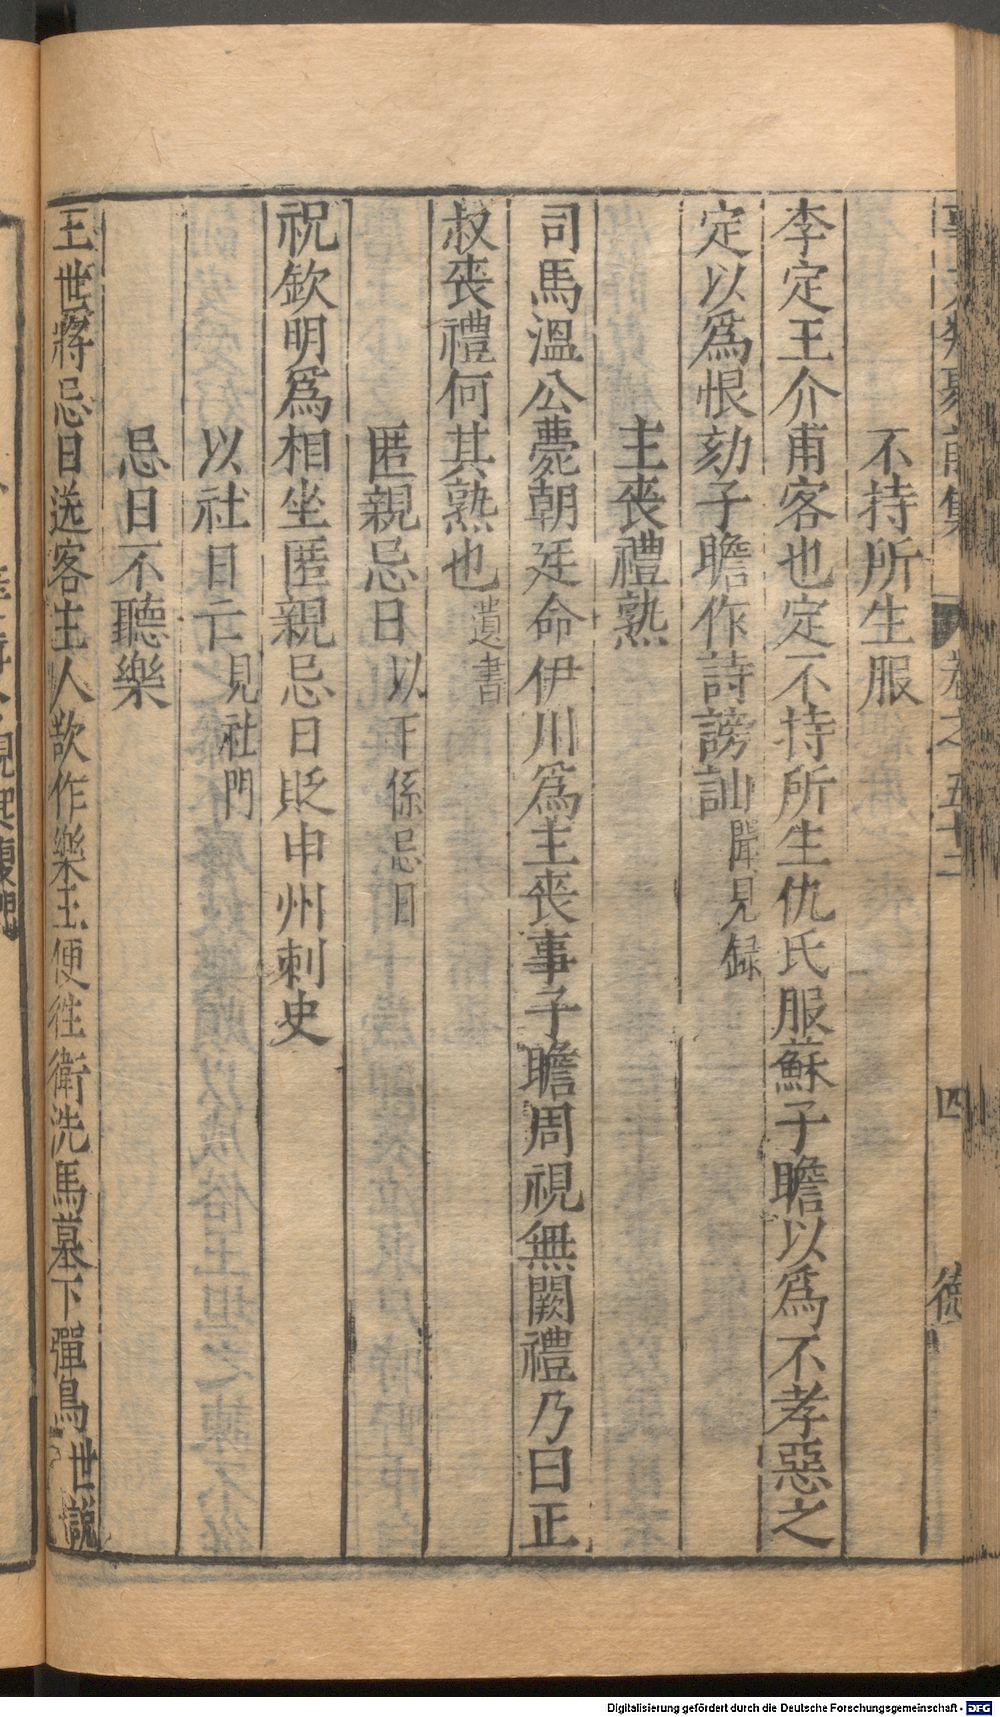 事文類聚前集 卷之五十二 四 德
不持所生服
李定王介甫客也定不持所生仇氏服蘇子瞻以爲不孝惡之
定以爲恨劾子瞻作詩謗訕聞見録
主丧禮熟
司馬溫公薨朝廷命伊川爲主丧事子瞻周視無闕禮乃曰正
叔丧禮何其熟也遺書
匿親忌日以下係忌日
祝欽明爲相坐匿親忌日貶申州刺史
以社日亡見社門
忌日不聽樂
王世將忌日送客主人欲作樂王便徃衛洗馬墓下彈鳥世説
Digitalisierung gefördert durch die Deutsche Forschungsgemeinschaft - DFG